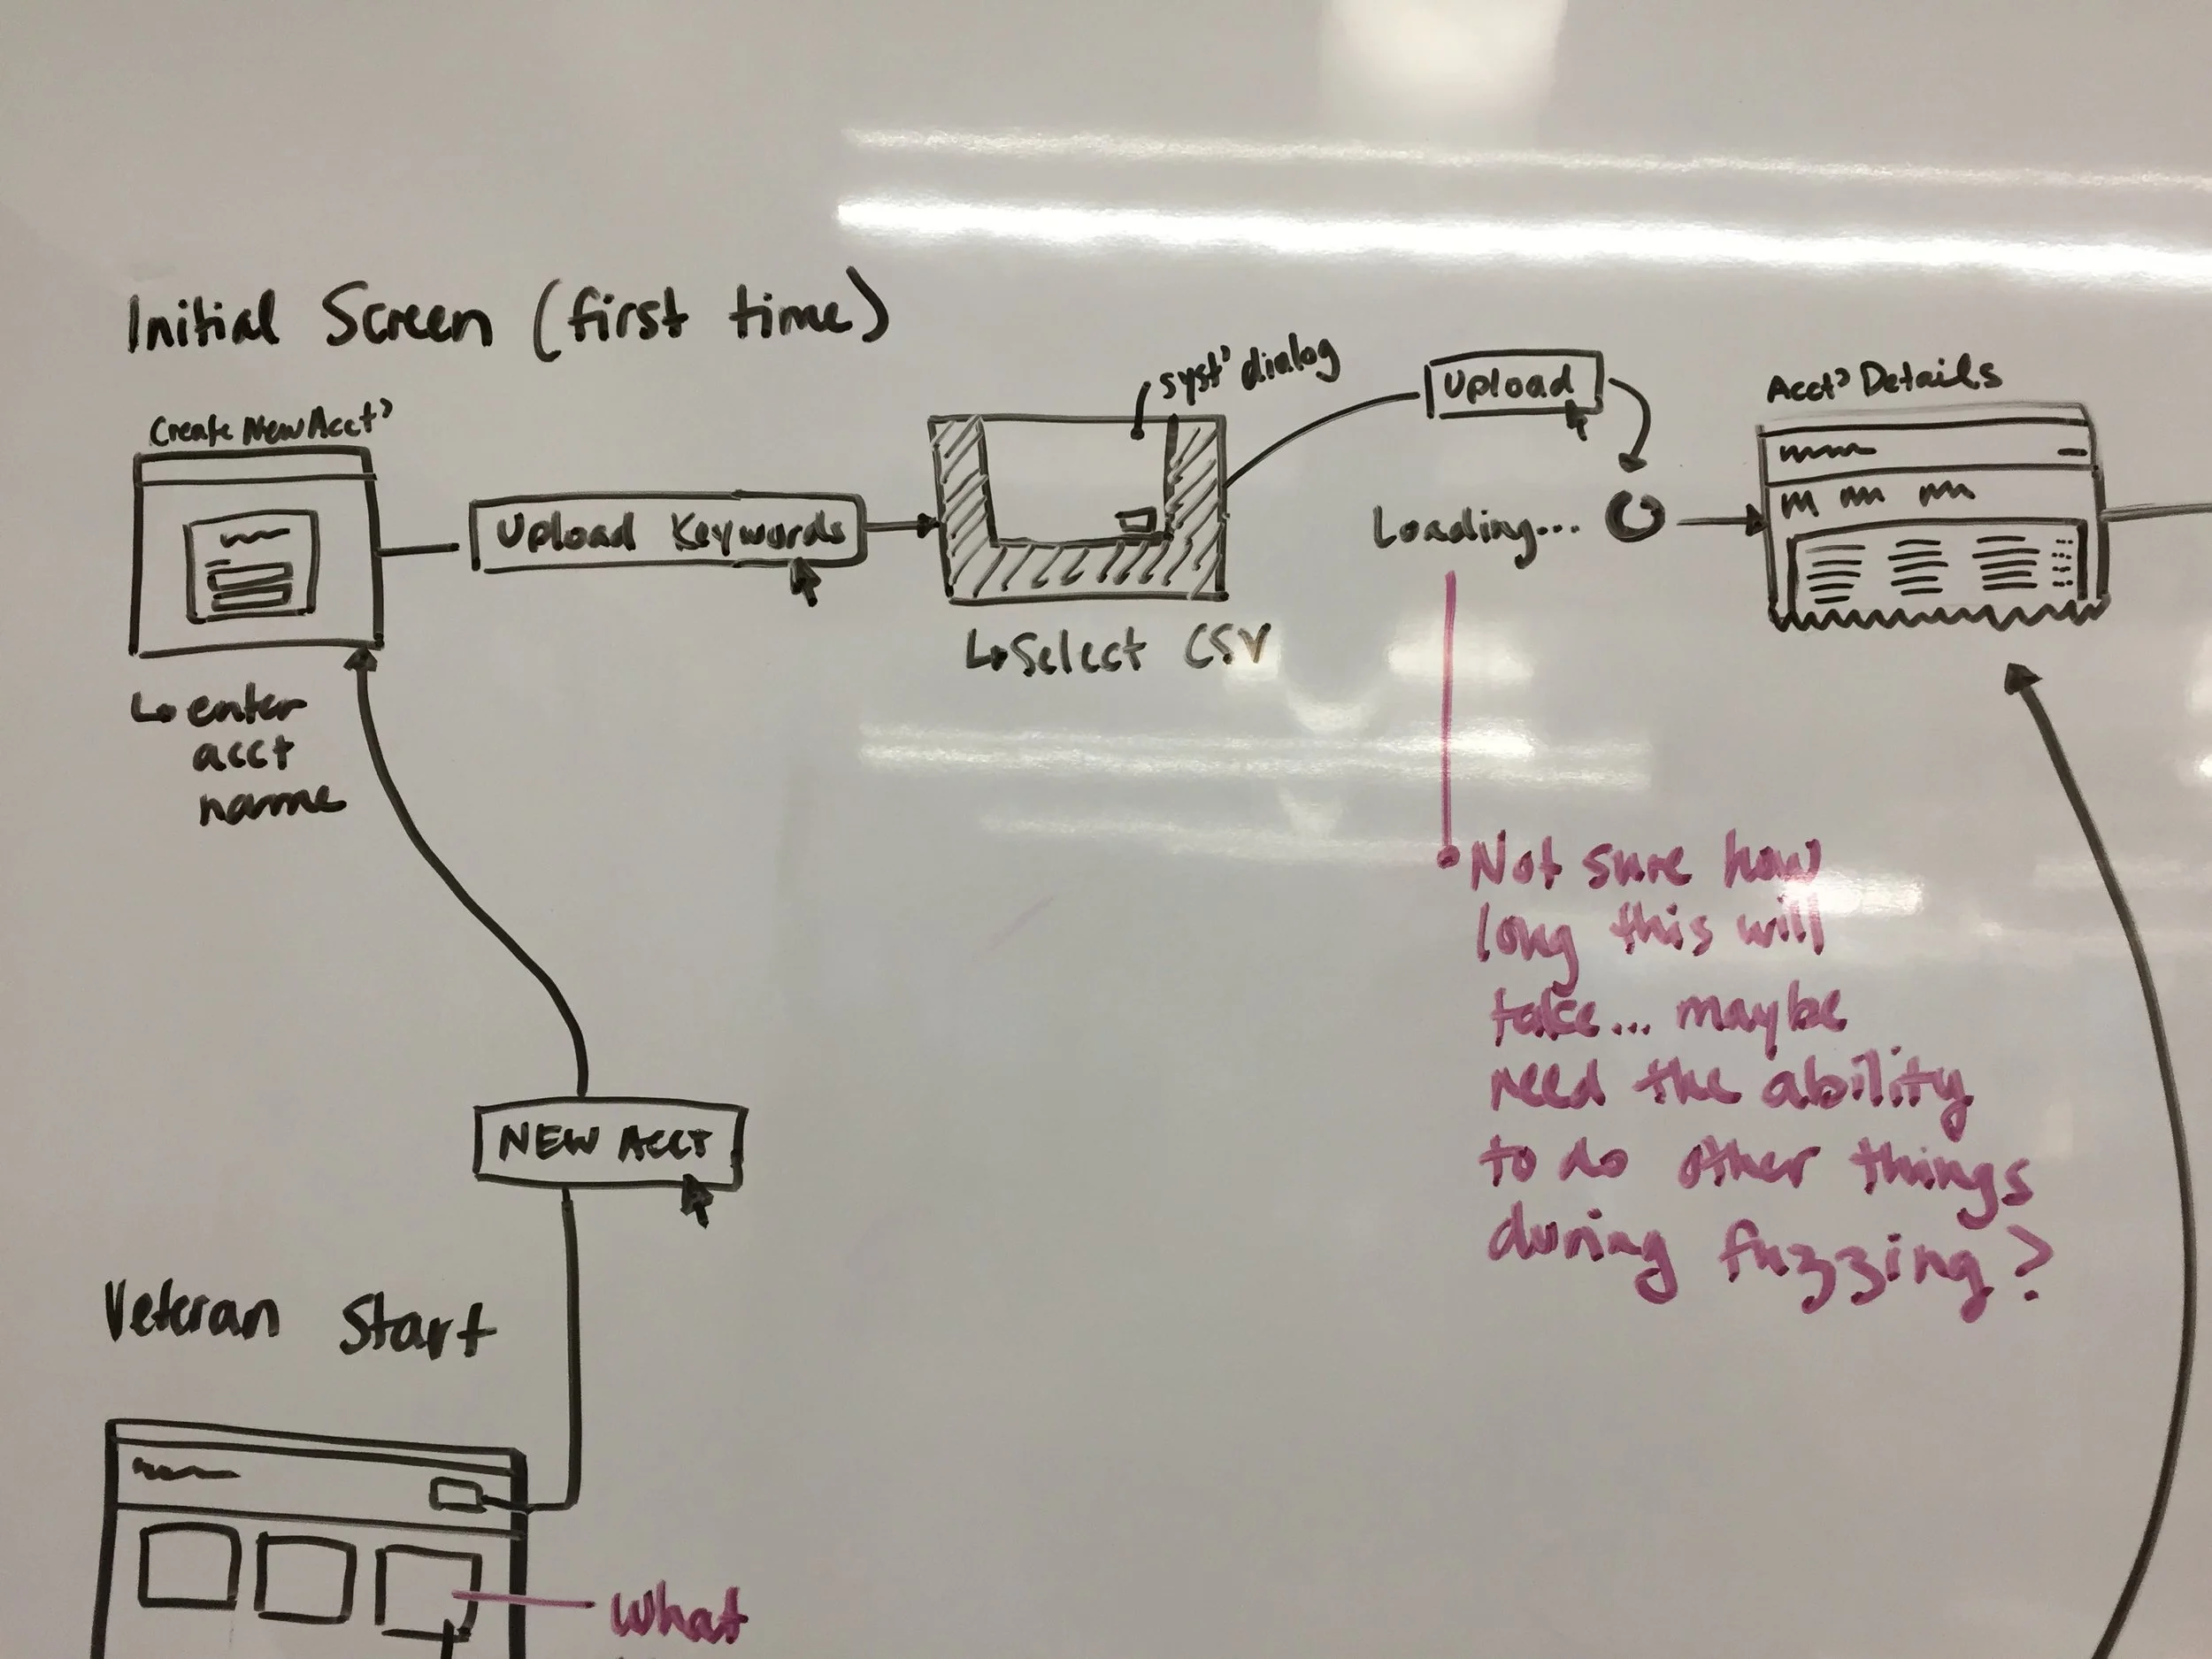 Initial Screen (first time)
Create New Acct'
↳ enter
acct
name
Upload Keywords
syst' dialog
↳ Select CSV
Upload
Loading...
Acct' Details
Not sure how
long this will
take... maybe
need the ability
to do other things
during fuzzing?
NEW ACCT
Veteran Start
What